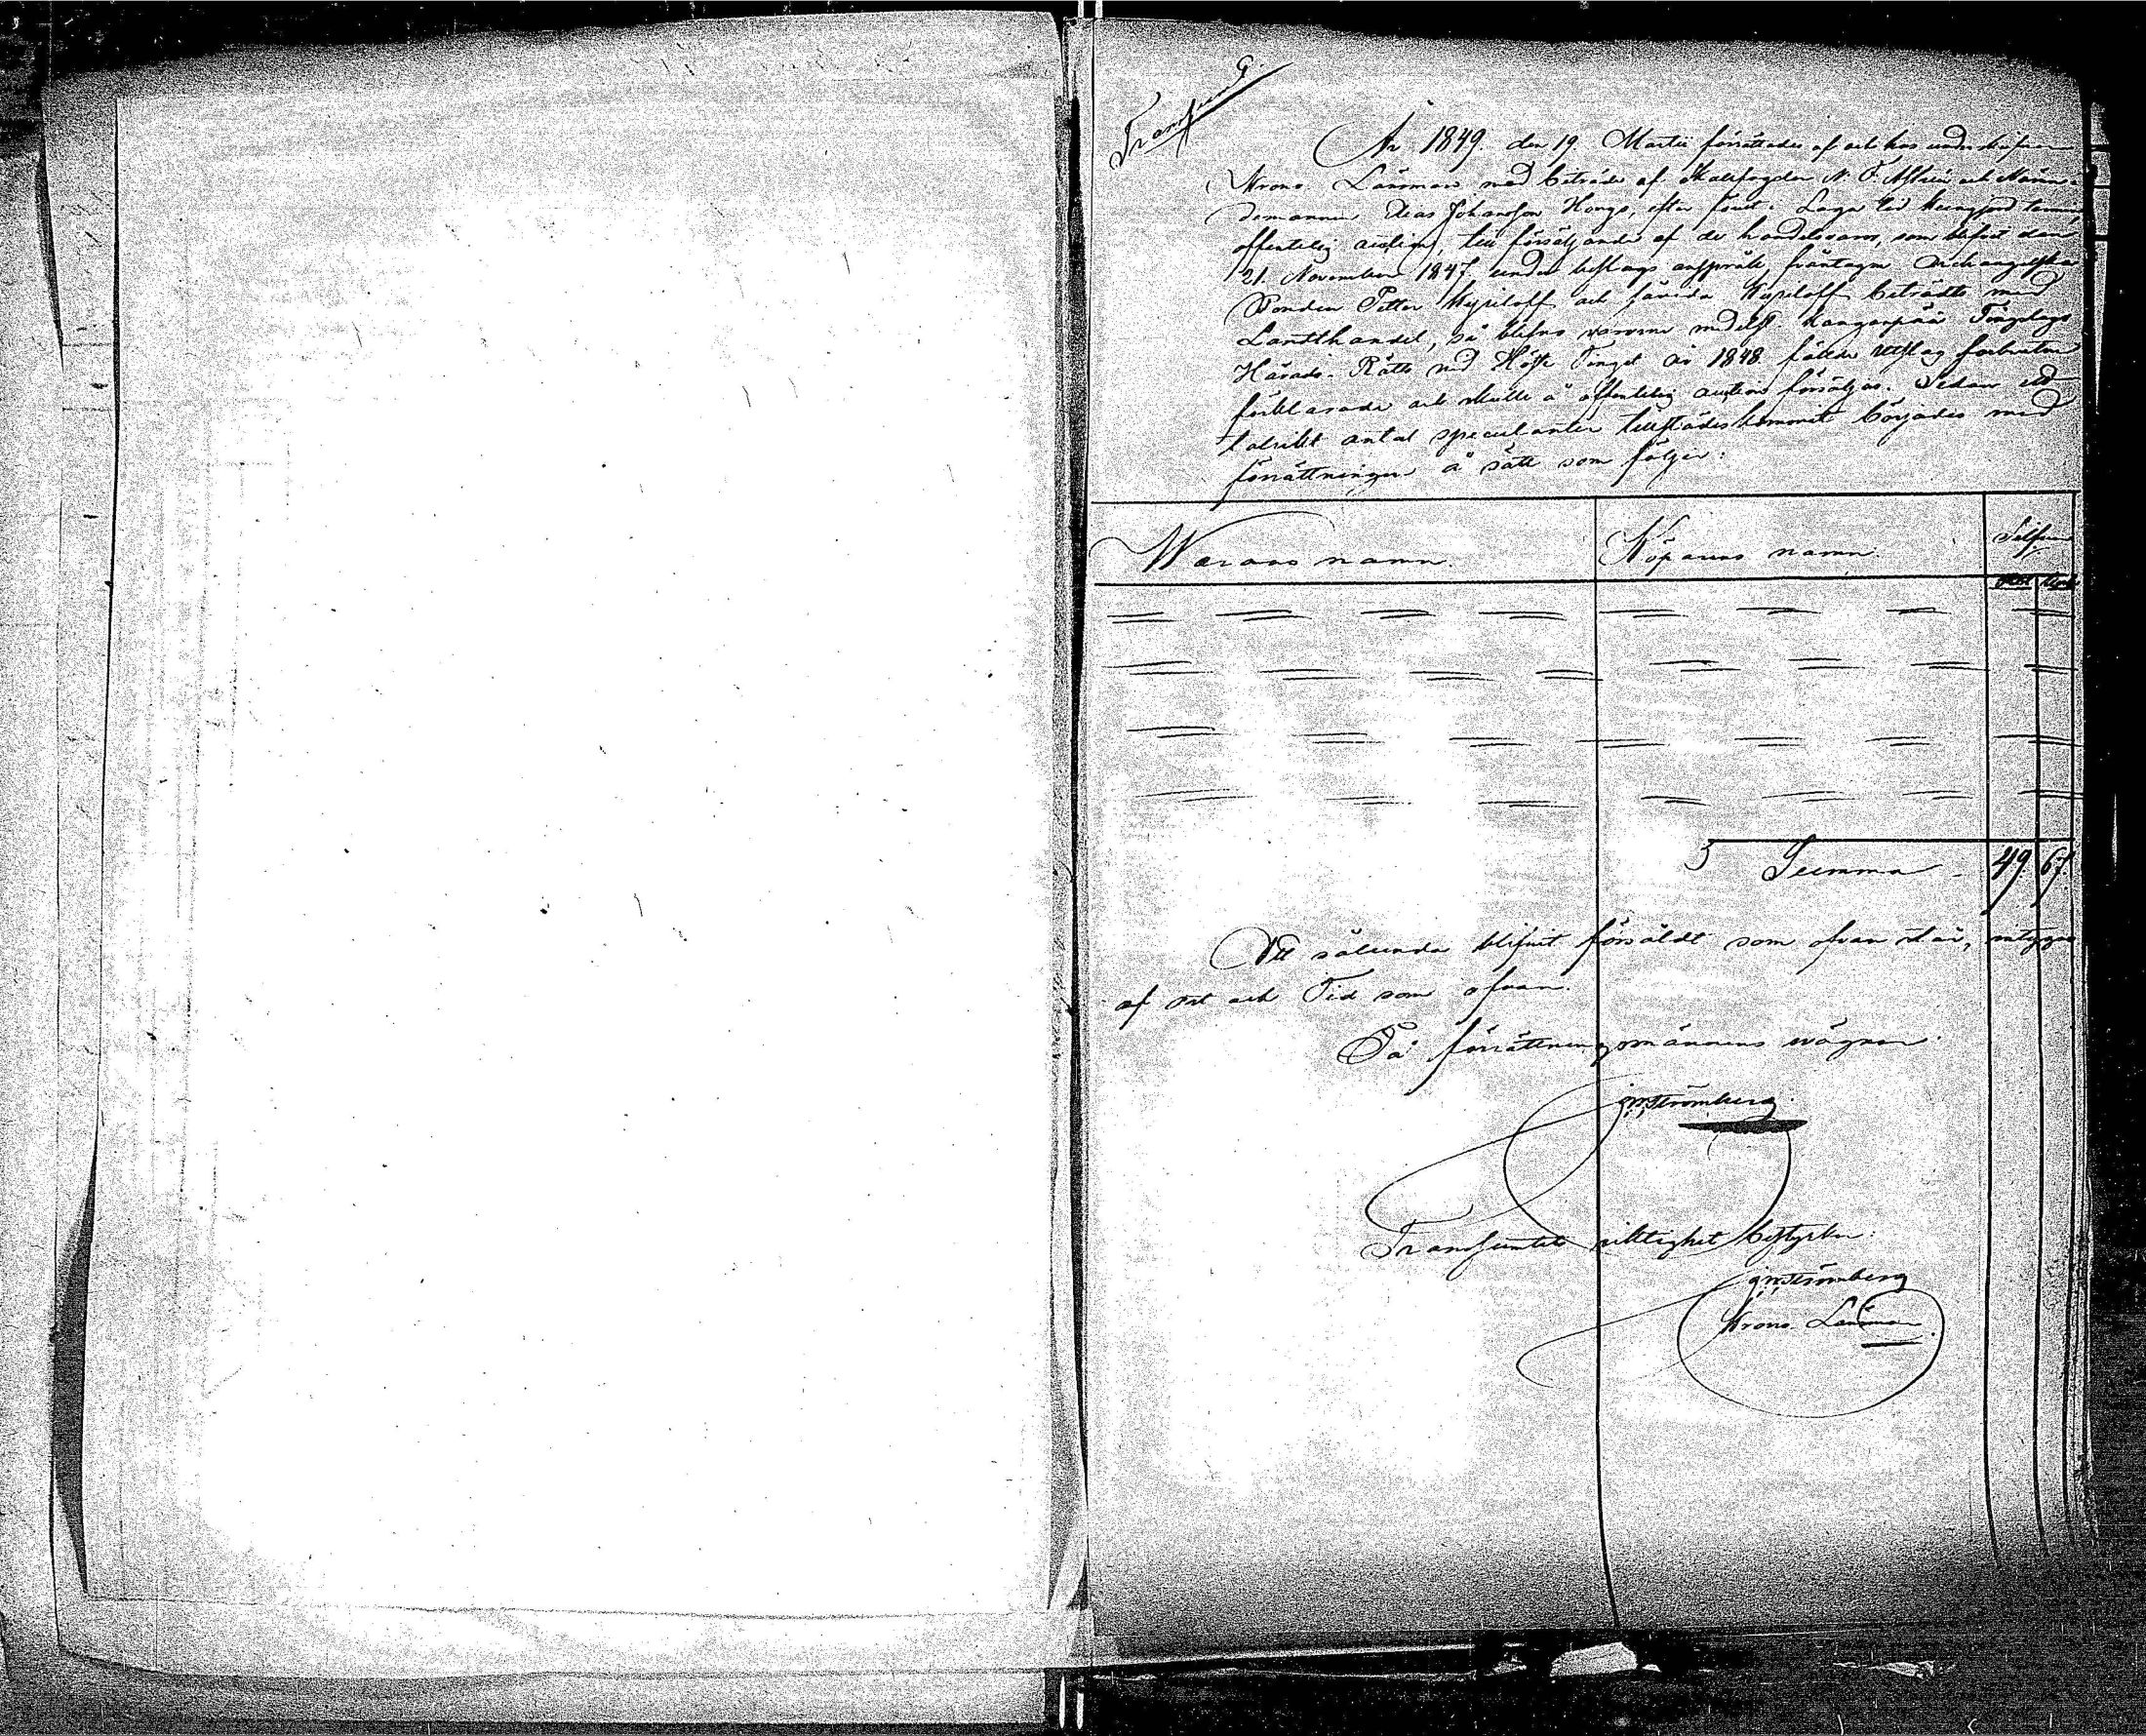 Transsumt.
År 1849. den 19 Martii förrättades af och hos underskrifven
Krono Länsman med biträde af Skallfogden N. F. och Nämn-
demannen Elias Johansson Honga, efter förut i Laga tid kungjord termin
offentelig auction, till försäljande af de handelsvaror, som blifvit den
21. November 1847. under beslags anspråk fråntagne Archangelska
Bonden Petter Kyriloff och Kyriloff beträdde med
Landthandel, så blefvo varorne medelst Kanganpää Tingslags
Härads-Rätts vid Höste Tinget år 1848 fälda utslag förbrutne
förklarade och skulle å offentelig auction försäljas. Sedan ett
talrikt antal speculanter tillstädeskommit börjades med
förrättningen å sätt som följer:
Warans namn. Köparens namn. Silfver
Rbl Kop
Summa 49 67.
Att sålunda blifvit försåldt som ofvan står, intygas
af ort och Tid som ofvan.
På förrättningsmännens wägnar.
Strömberg.
Transsumtets riktighet bestyrker:
Strömberg
Krono Länsman.